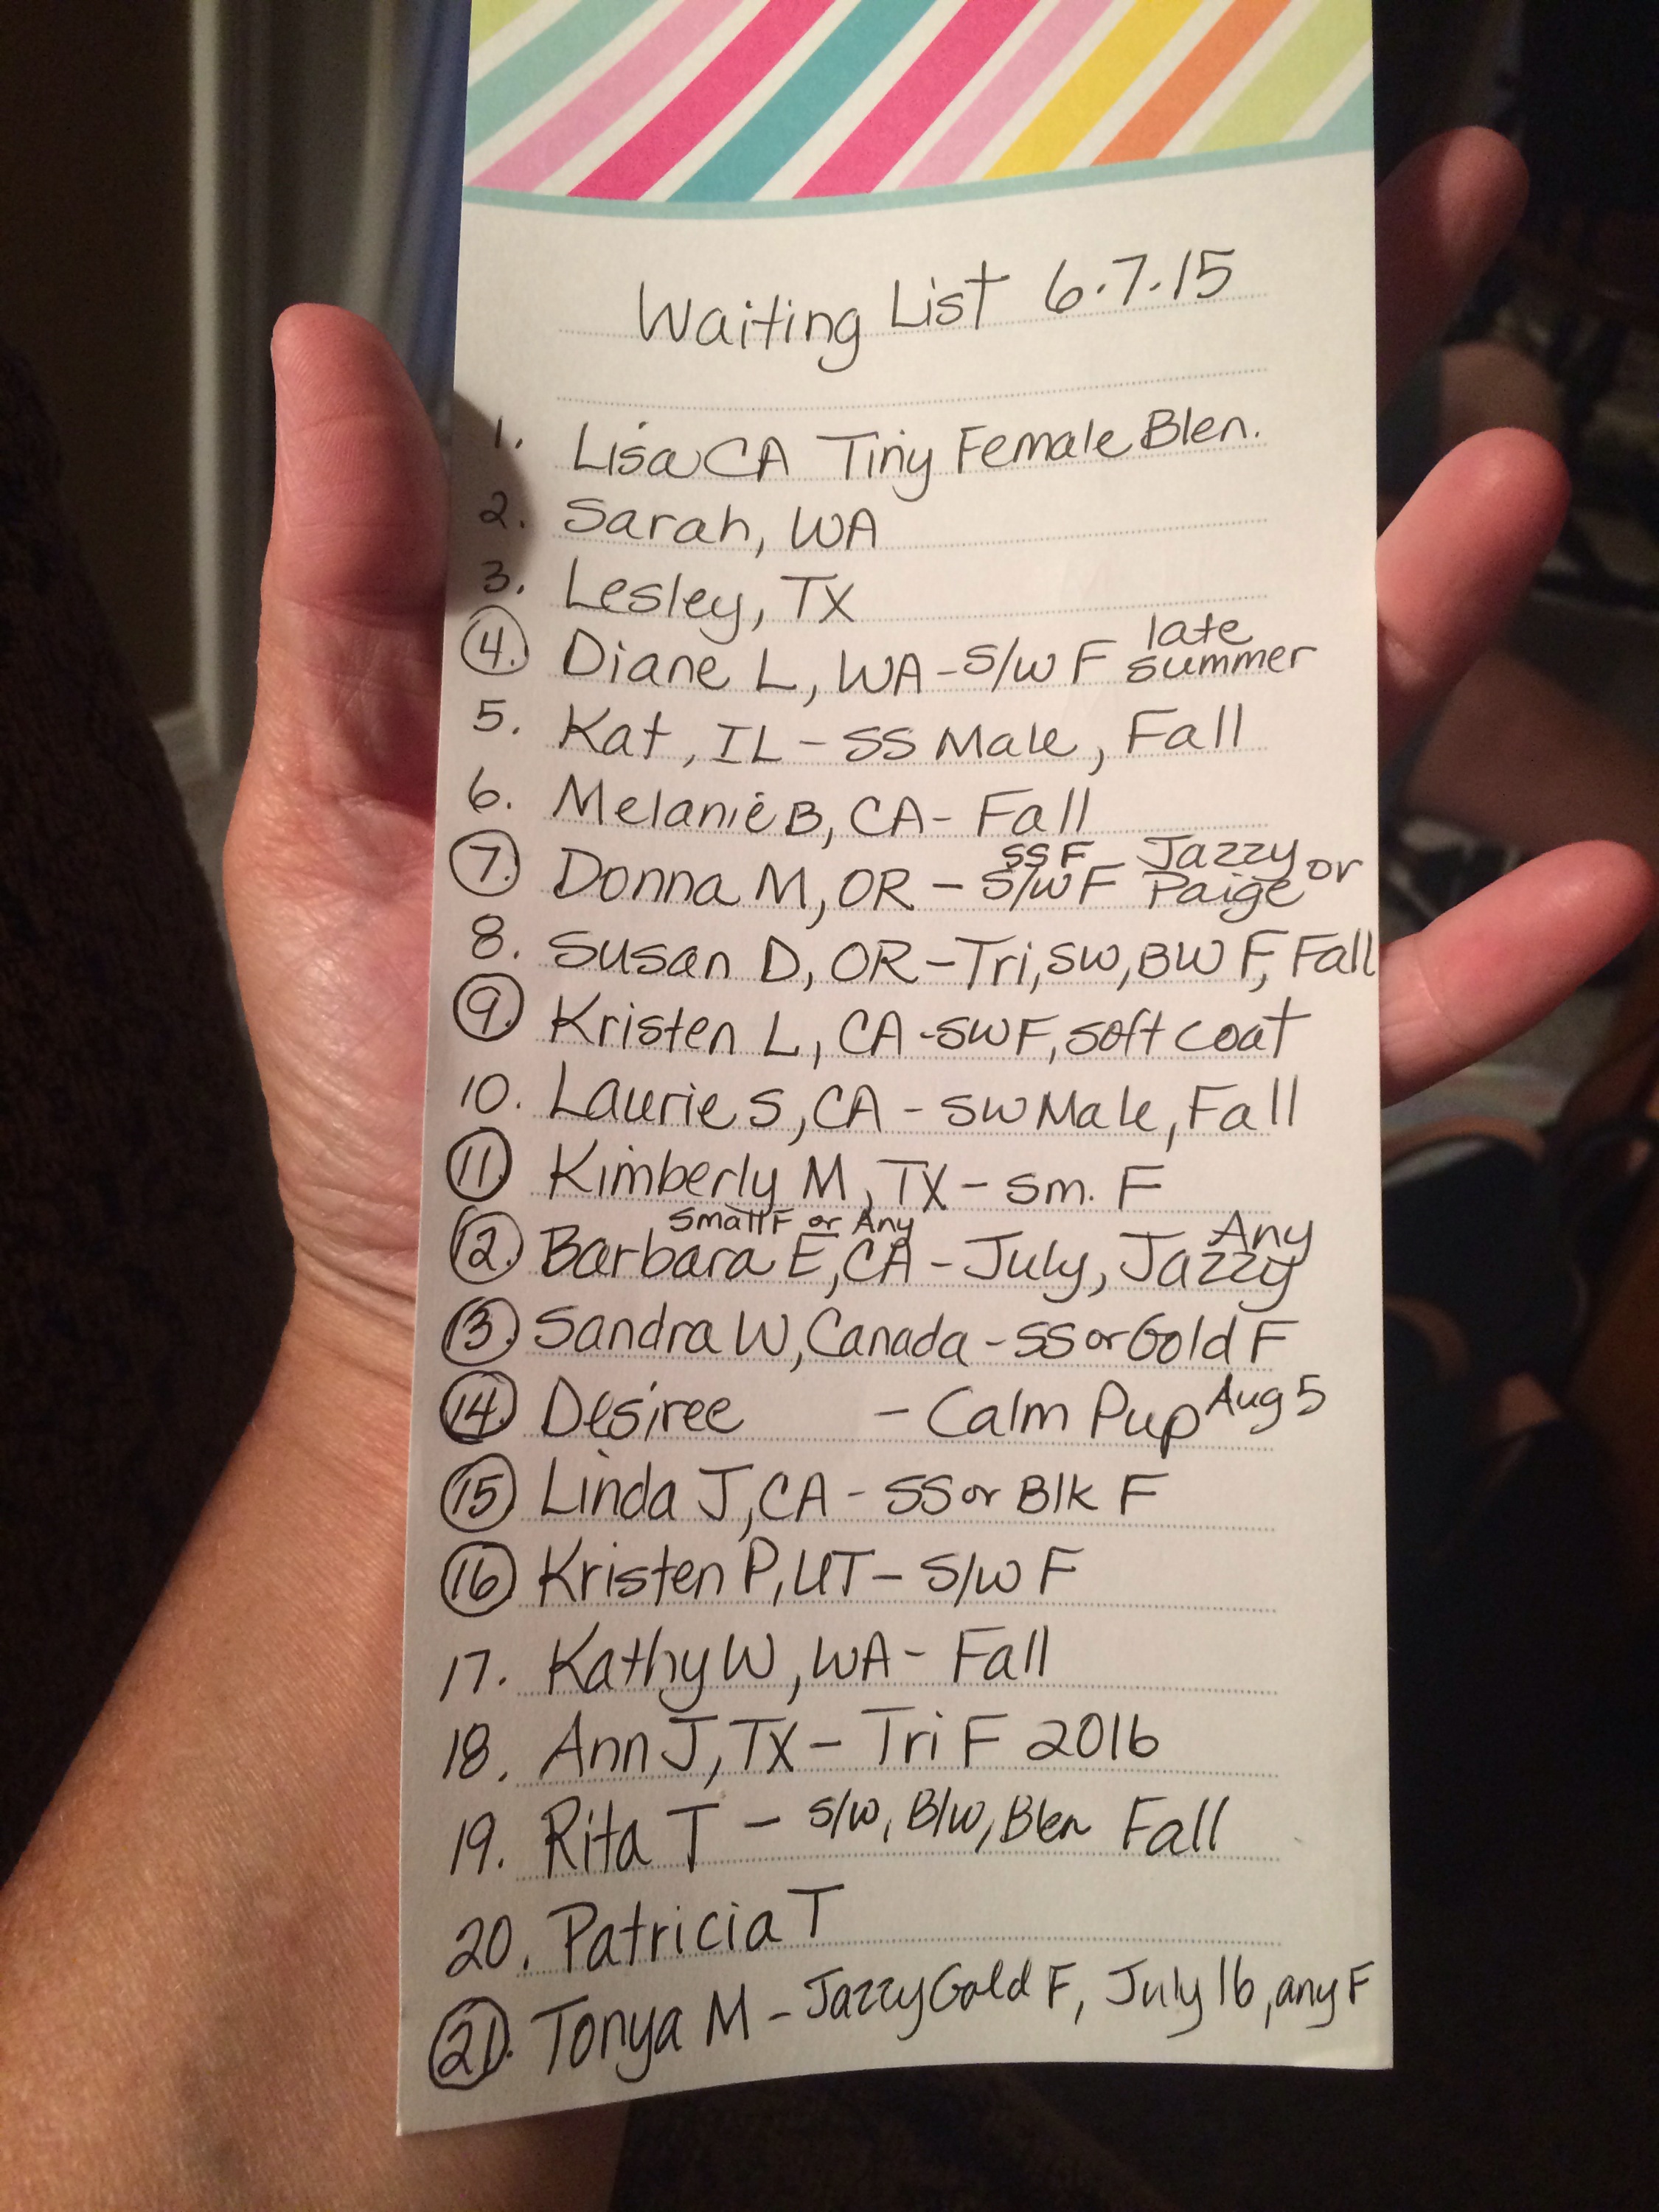 Waiting List 6.7.15
1. Lisa CA Tiny Female Blen.
2. Sarah, WA
3. Lesley, TX
late
4. Diane L, WA - S/W F summer
5. Kat, IL - SS Male, Fall
6. Melanie B, CA - Fall
SSF - Jazzy or
7. Donna M, OR - S/W F Paige
8. Susan D, OR - Tri, SW, BW F, Fall
9. Kristen L, CA - SWF, soft coat
10. Laurie S, CA - SW Male, Fall
11. Kimberly M, TX - sm. F
Small F or Any Any
12. Barbara E, CA - July, Jazzy
13. Sandra W, Canada - SS or Gold F
14. Desiree - Calm Pup Aug 5
15. Linda J, CA - SS or Blk F
16. Kristen P, UT - S/W F
17. Kathy W, WA - Fall
18. Ann J, TX - Tri F 2016
19. Rita T - S/W, B/W, Blen Fall
20. Patricia T
21. Tonya M - Jazzy Gold F, July 16, any F